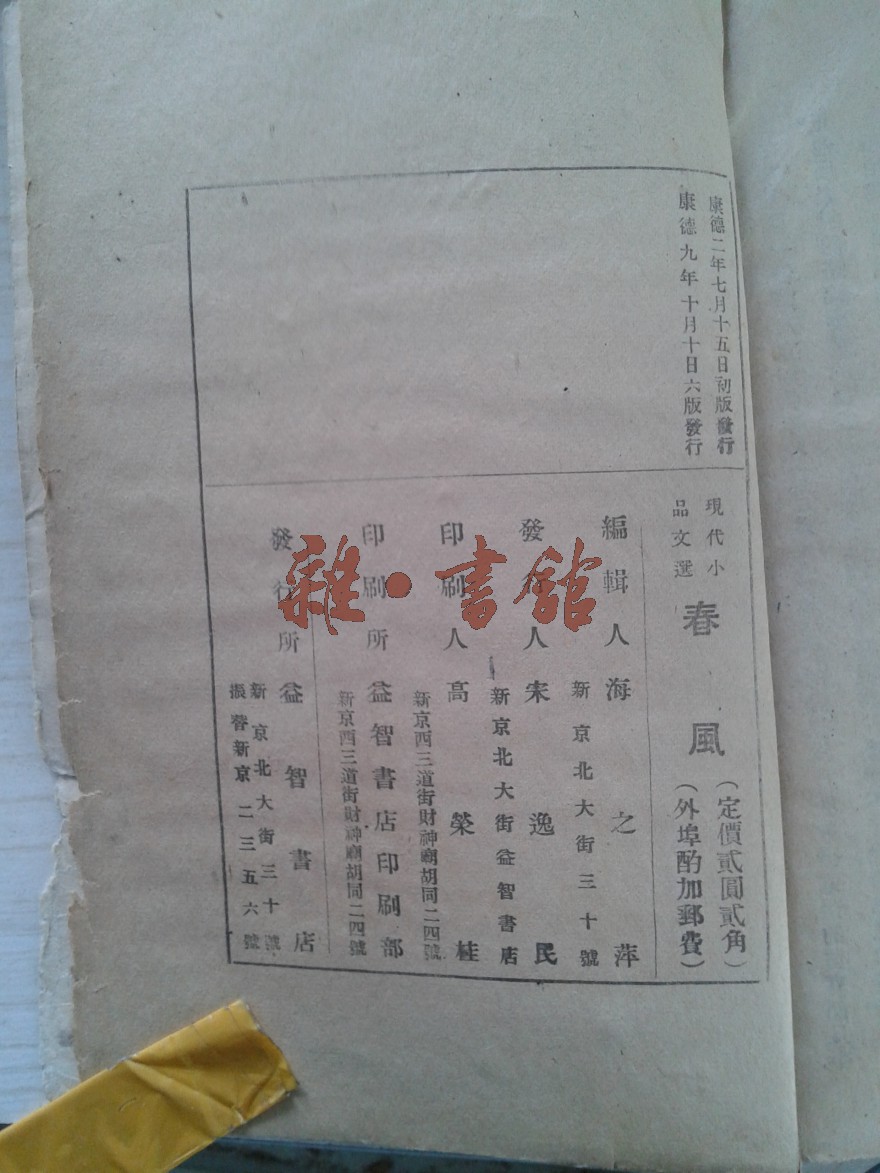 康德二年七月十五日初版發行
康德九年十月十日六版發行
現代小
品文選
春風
(定價貳圓貳角)
(外埠酌加郵費)
編輯人 海之萍
新京北大街三十號
發行人 宋逸民
新京北大街益智書店
印刷人 高榮桂
新京西三道街財神廟胡同二四號
印刷所 益智書店印刷部
新京西三道街財神廟胡同二四號
發行所 益智書店
新京北大街三十號
振替新京二三五六號
雜·書館